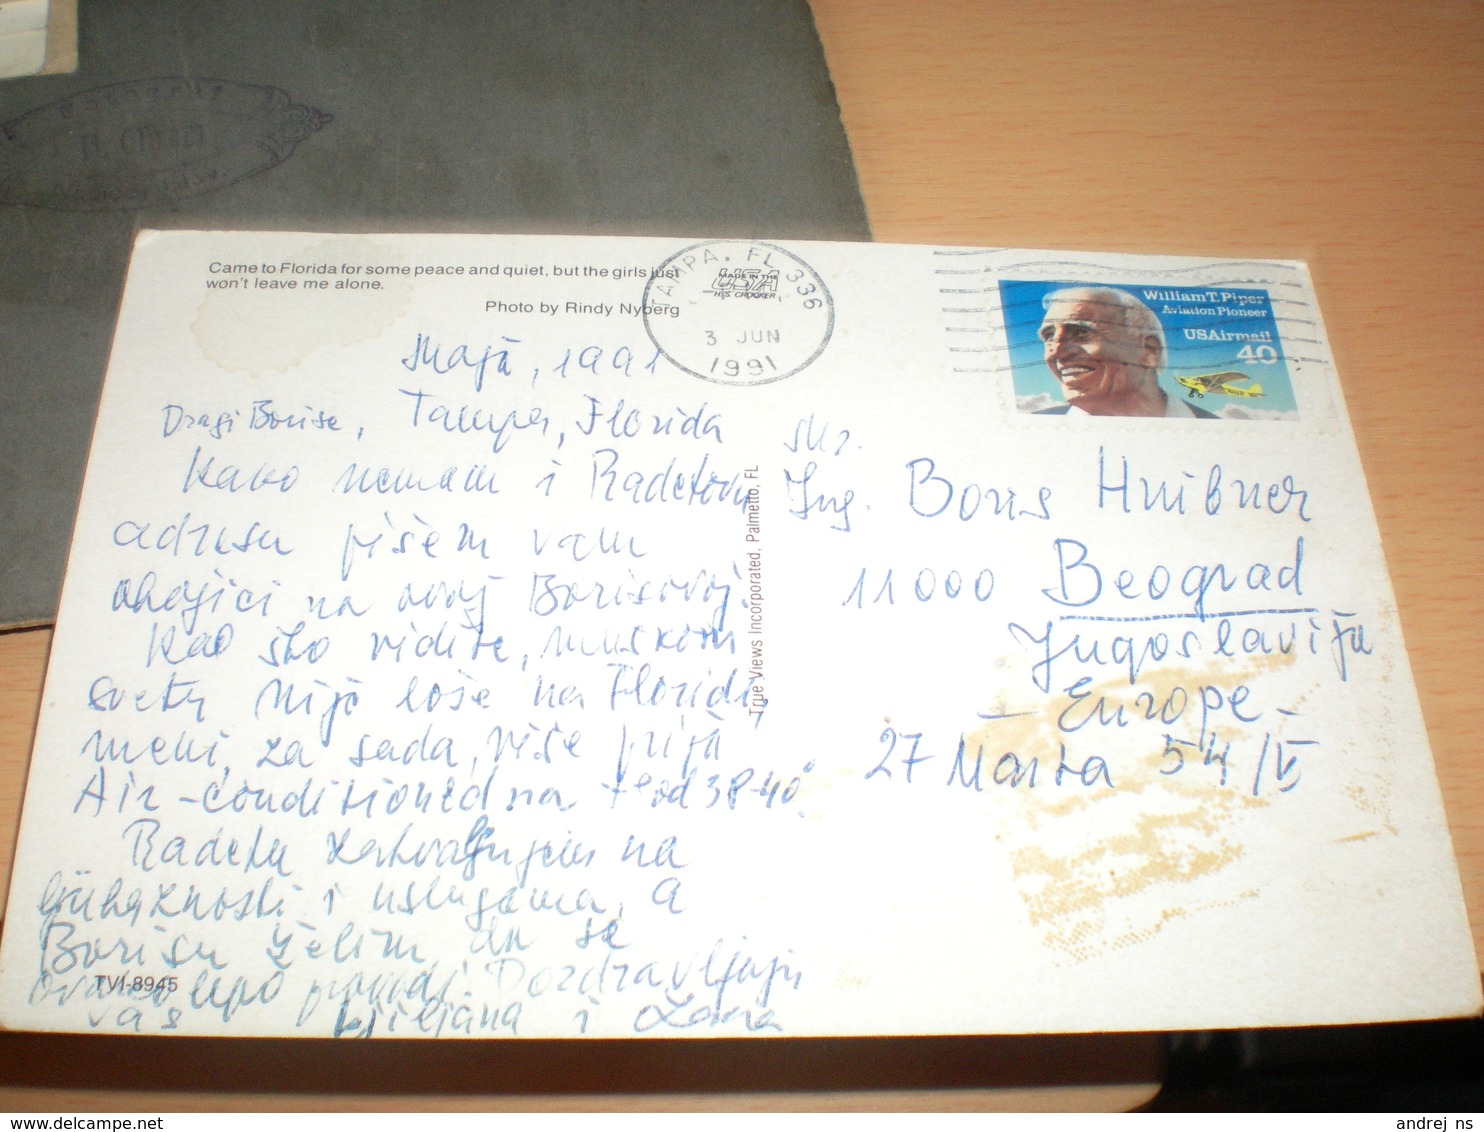 Came to Florida for some peace and quiet, but the girls just
won't leave me alone.
Photo by Rindy Nyberg
TAMPA, FL 336
MADE IN THE
USA
H.S. CROCKER
3 JUN
1991
William T. Piper
Aviation Pioneer
USAirmail
40
Maja, 1991
Tampa, Florida
Dragi Borise,
Kako nemam i Radetovu
adresu pišem vam
obojici na ovoj Borisovoj.
Kao što vidite, muškom
svetu nije loše na Floridi,
meni, za sada, više prija
Air-conditioned na + od 38-40°.
Radetu zahvaljujem na
ljubaznosti i uslugama, a
Borisu želim da se
ovako lepo provodi. Pozdravljaju
vas Ljiljana i
Mr.
Ing. Boris Hnibner
11000 Beograd
Jugoslavija
- Europe -
27 Marta 54/V
True Views Incorporated, Palmetto, FL
TVI-8945
andrej ns
delcampe.net